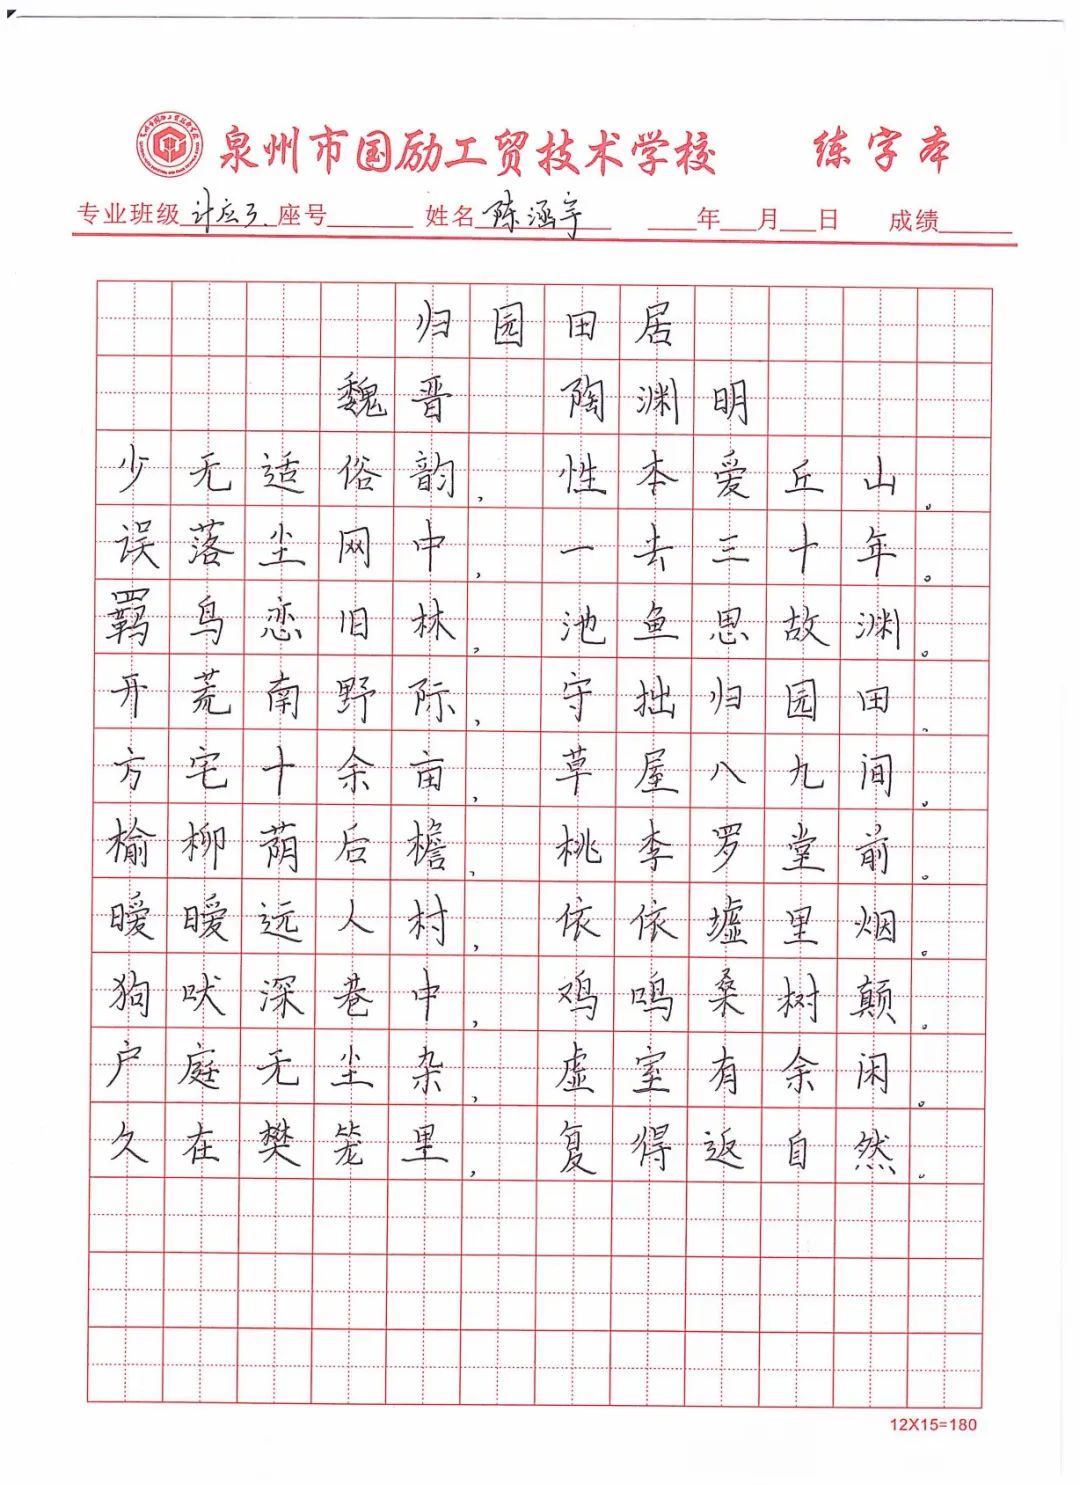 泉州市国励工贸技术学校 练字本
专业班级 计应3. 座号 姓名 陈涵宇 年 月 日 成绩
归园田居
魏晋 陶渊明
少无适俗韵，性本爱丘山。
误落尘网中，一去三十年。
羁鸟恋旧林，池鱼思故渊。
开荒南野际，守拙归园田、
方宅十余亩，草屋八九间。
榆柳荫后檐、桃李罗堂前。
暧暧远人村，依依墟里烟。
狗吠深巷中，鸡鸣桑树颠。
户庭无尘杂，虚室有余闲。
久在樊笼里，复得返自然。
12X15=180